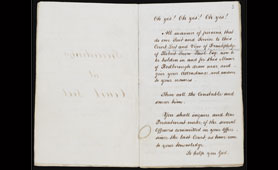 Oh yes! Oh yes! Oh yes!
All manner of persons that
do owe Suit and Service to this
Court Leet and View of Frankpledge
of
to be holden in and for this Manor
of Redbrough draw near and
give your Attendance and answer
to your names
Then call the Constable and
swear him.
You shall enquire and true
Presentment make of the several
Offences committed in your Office
since the last Court as have come
to your knowledge.
So help you God.